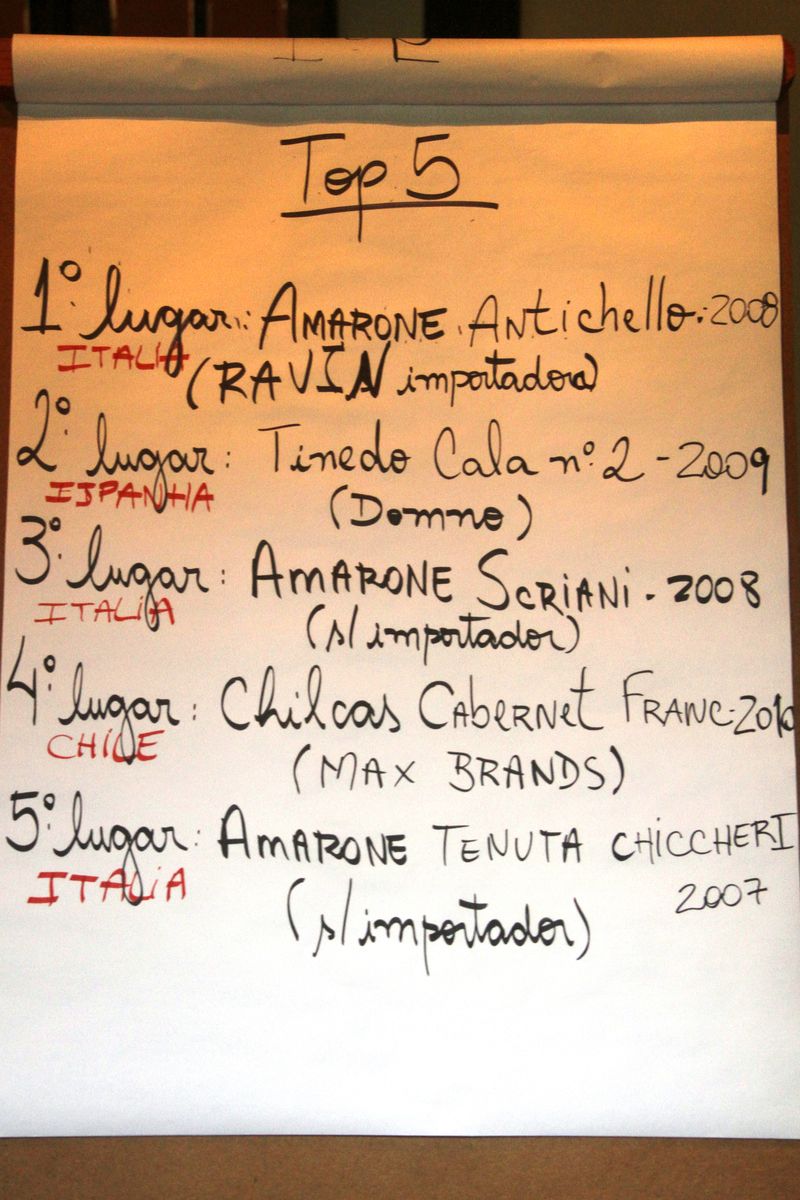 Top 5
1º lugar: AMARONE Antichello. 2008
ITALIA
(RAVIN importadora)
2º lugar: Tinedo Cala nº 2 - 2009
ESPANHA
(Domno)
3º lugar: AMARONE SCRIANI - 2008
ITALIA
(s/ importador)
4º lugar: Chilcas CABERNET FRANC - 2010
CHILE
(MAX BRANDS)
5º lugar: AMARONE TENUTA CHICCHERI
2007
ITALIA
(s/ importador)